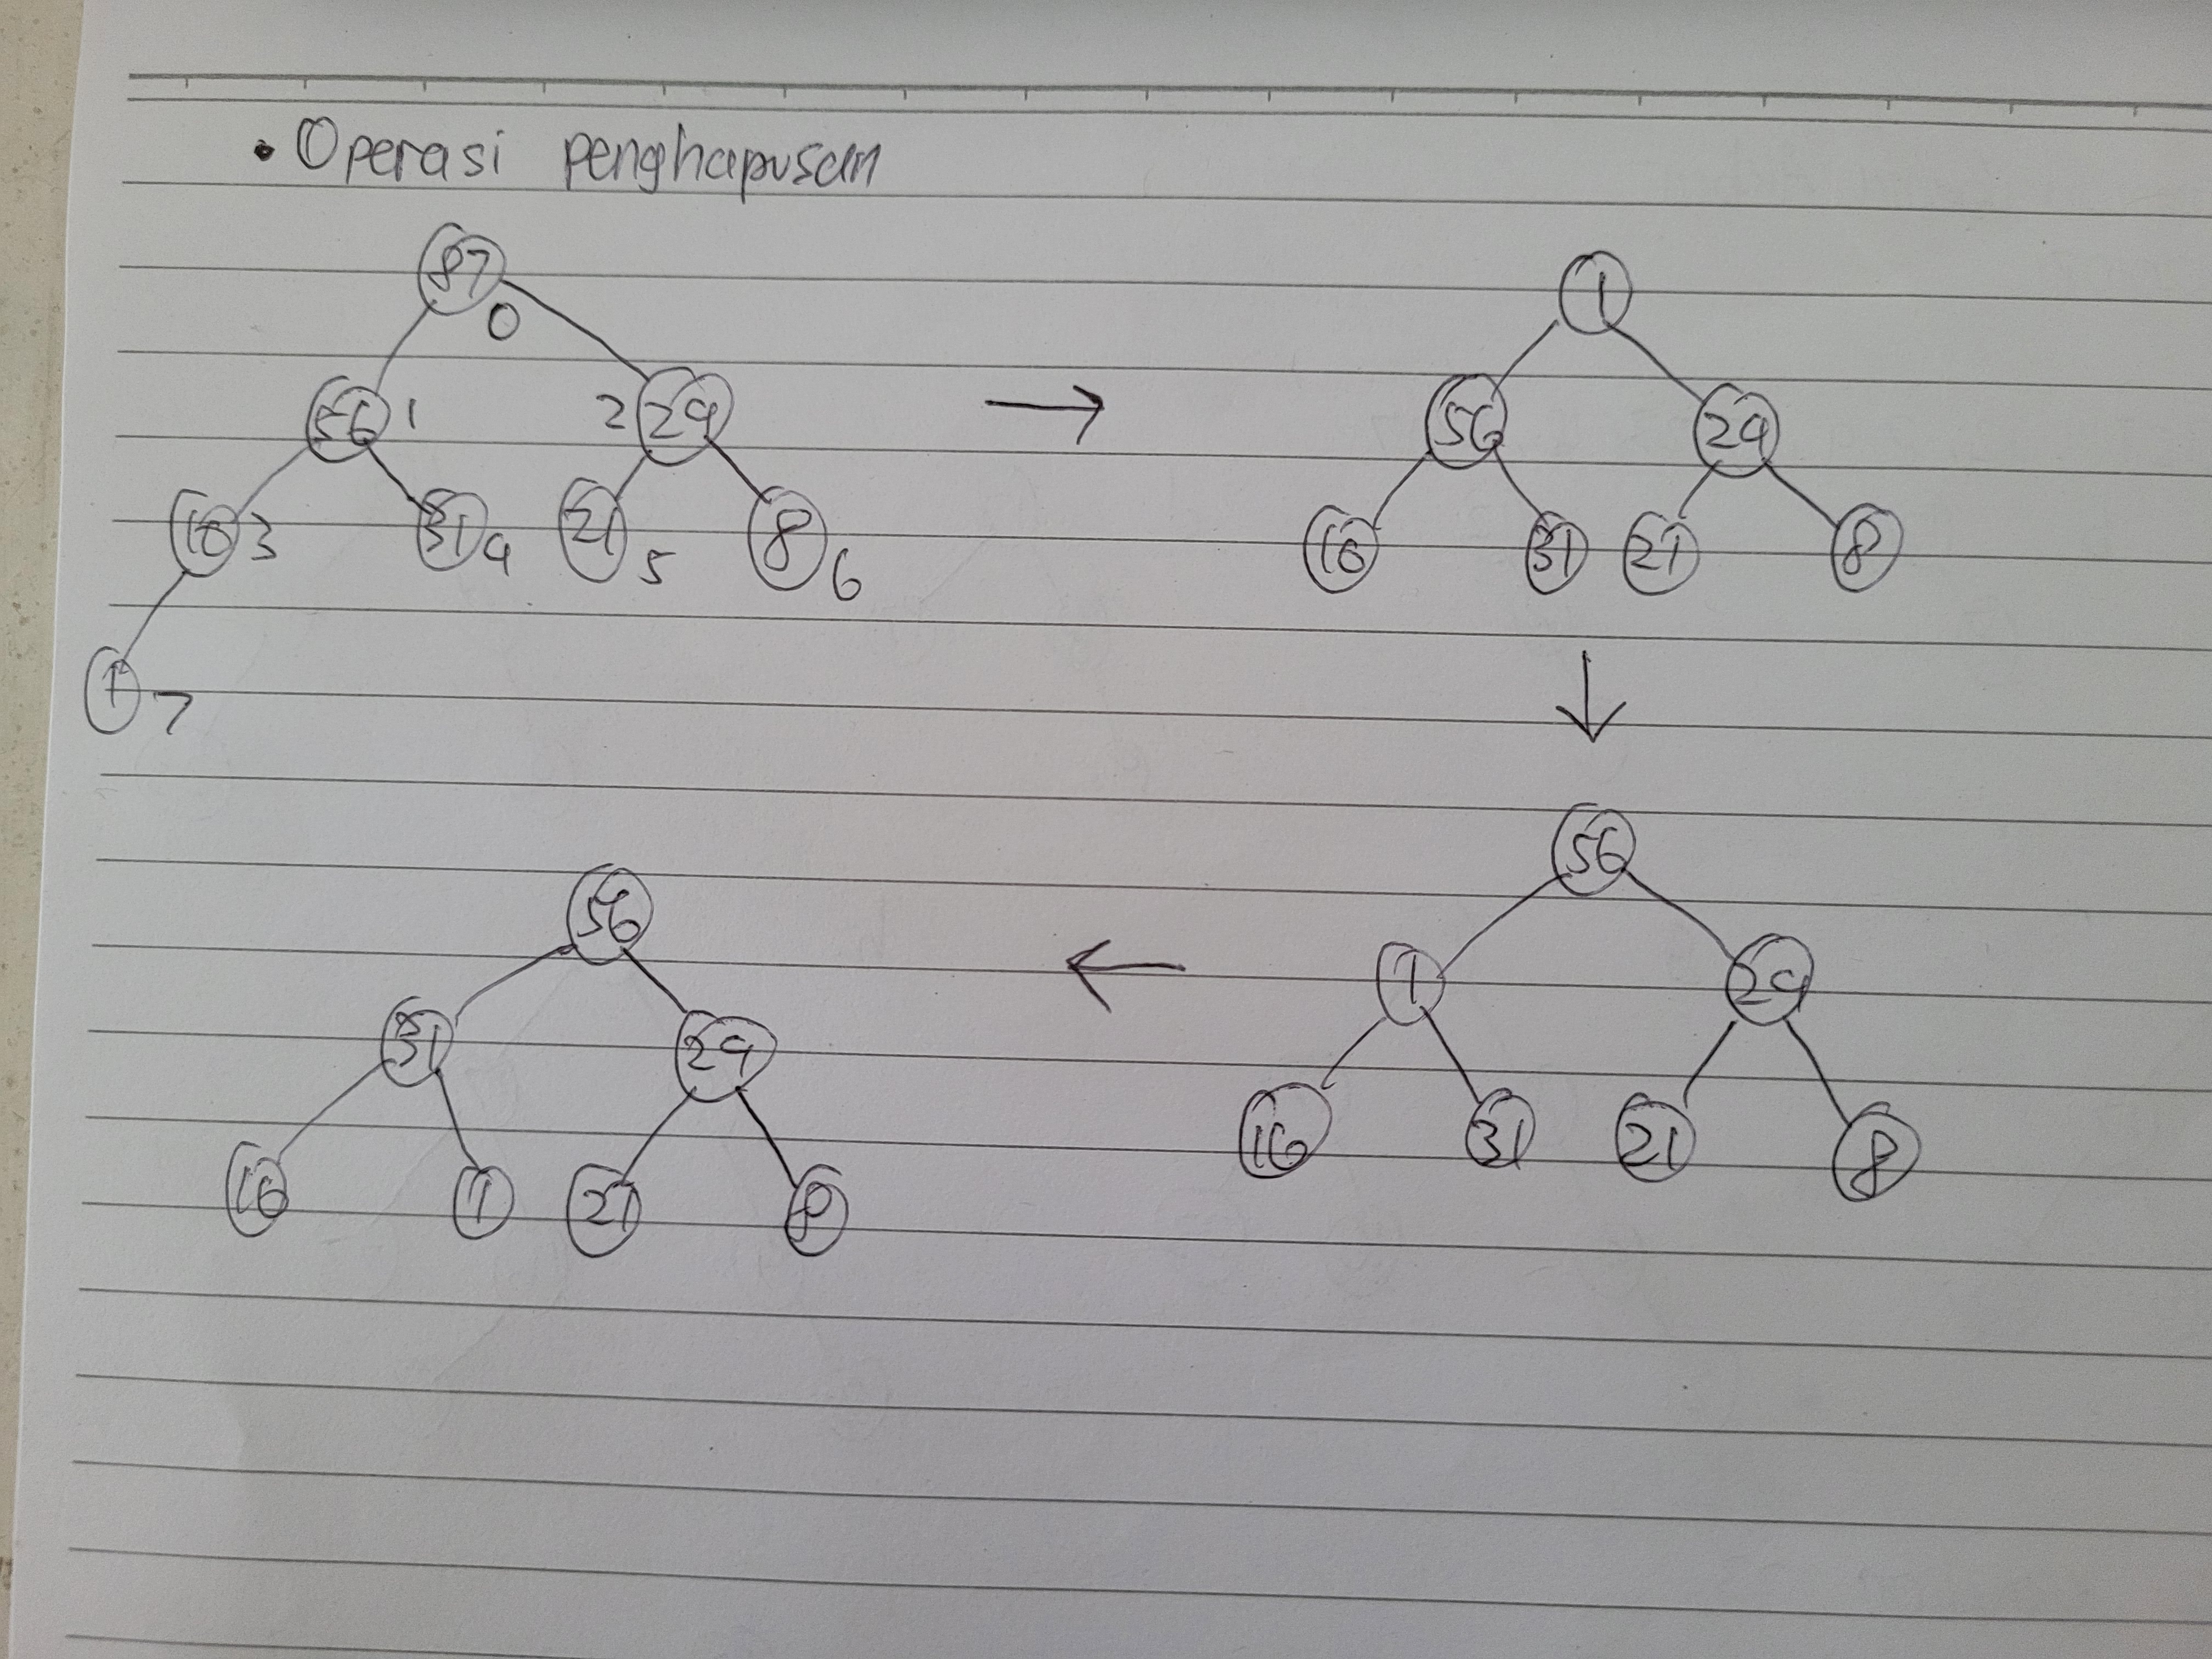 • Operasi penghapusan
87
0
56 1 2 29
16 3 31 4 21 5 8 6
1 7
1
56 29
16 31 21 8
56
1 29
16 31 21 8
56
31 29
16 1 21 8